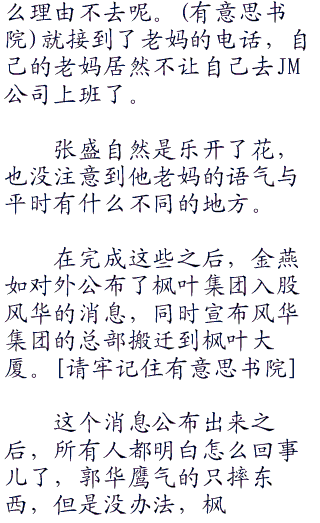 么理由不去呢。(有意思书
院)就接到了老妈的电话，自
己的老妈居然不让自己去JM
公司上班了。
张盛自然是乐开了花，
也没注意到他老妈的语气与
平时有什么不同的地方。
在完成这些之后，金燕
如对外公布了枫叶集团入股
风华的消息，同时宣布风华
集团的总部搬迁到枫叶大
厦。[请牢记住有意思书院]
这个消息公布出来之
后，所有人都明白怎么回事
儿了，郭华鹰气的只摔东
西，但是没办法，枫